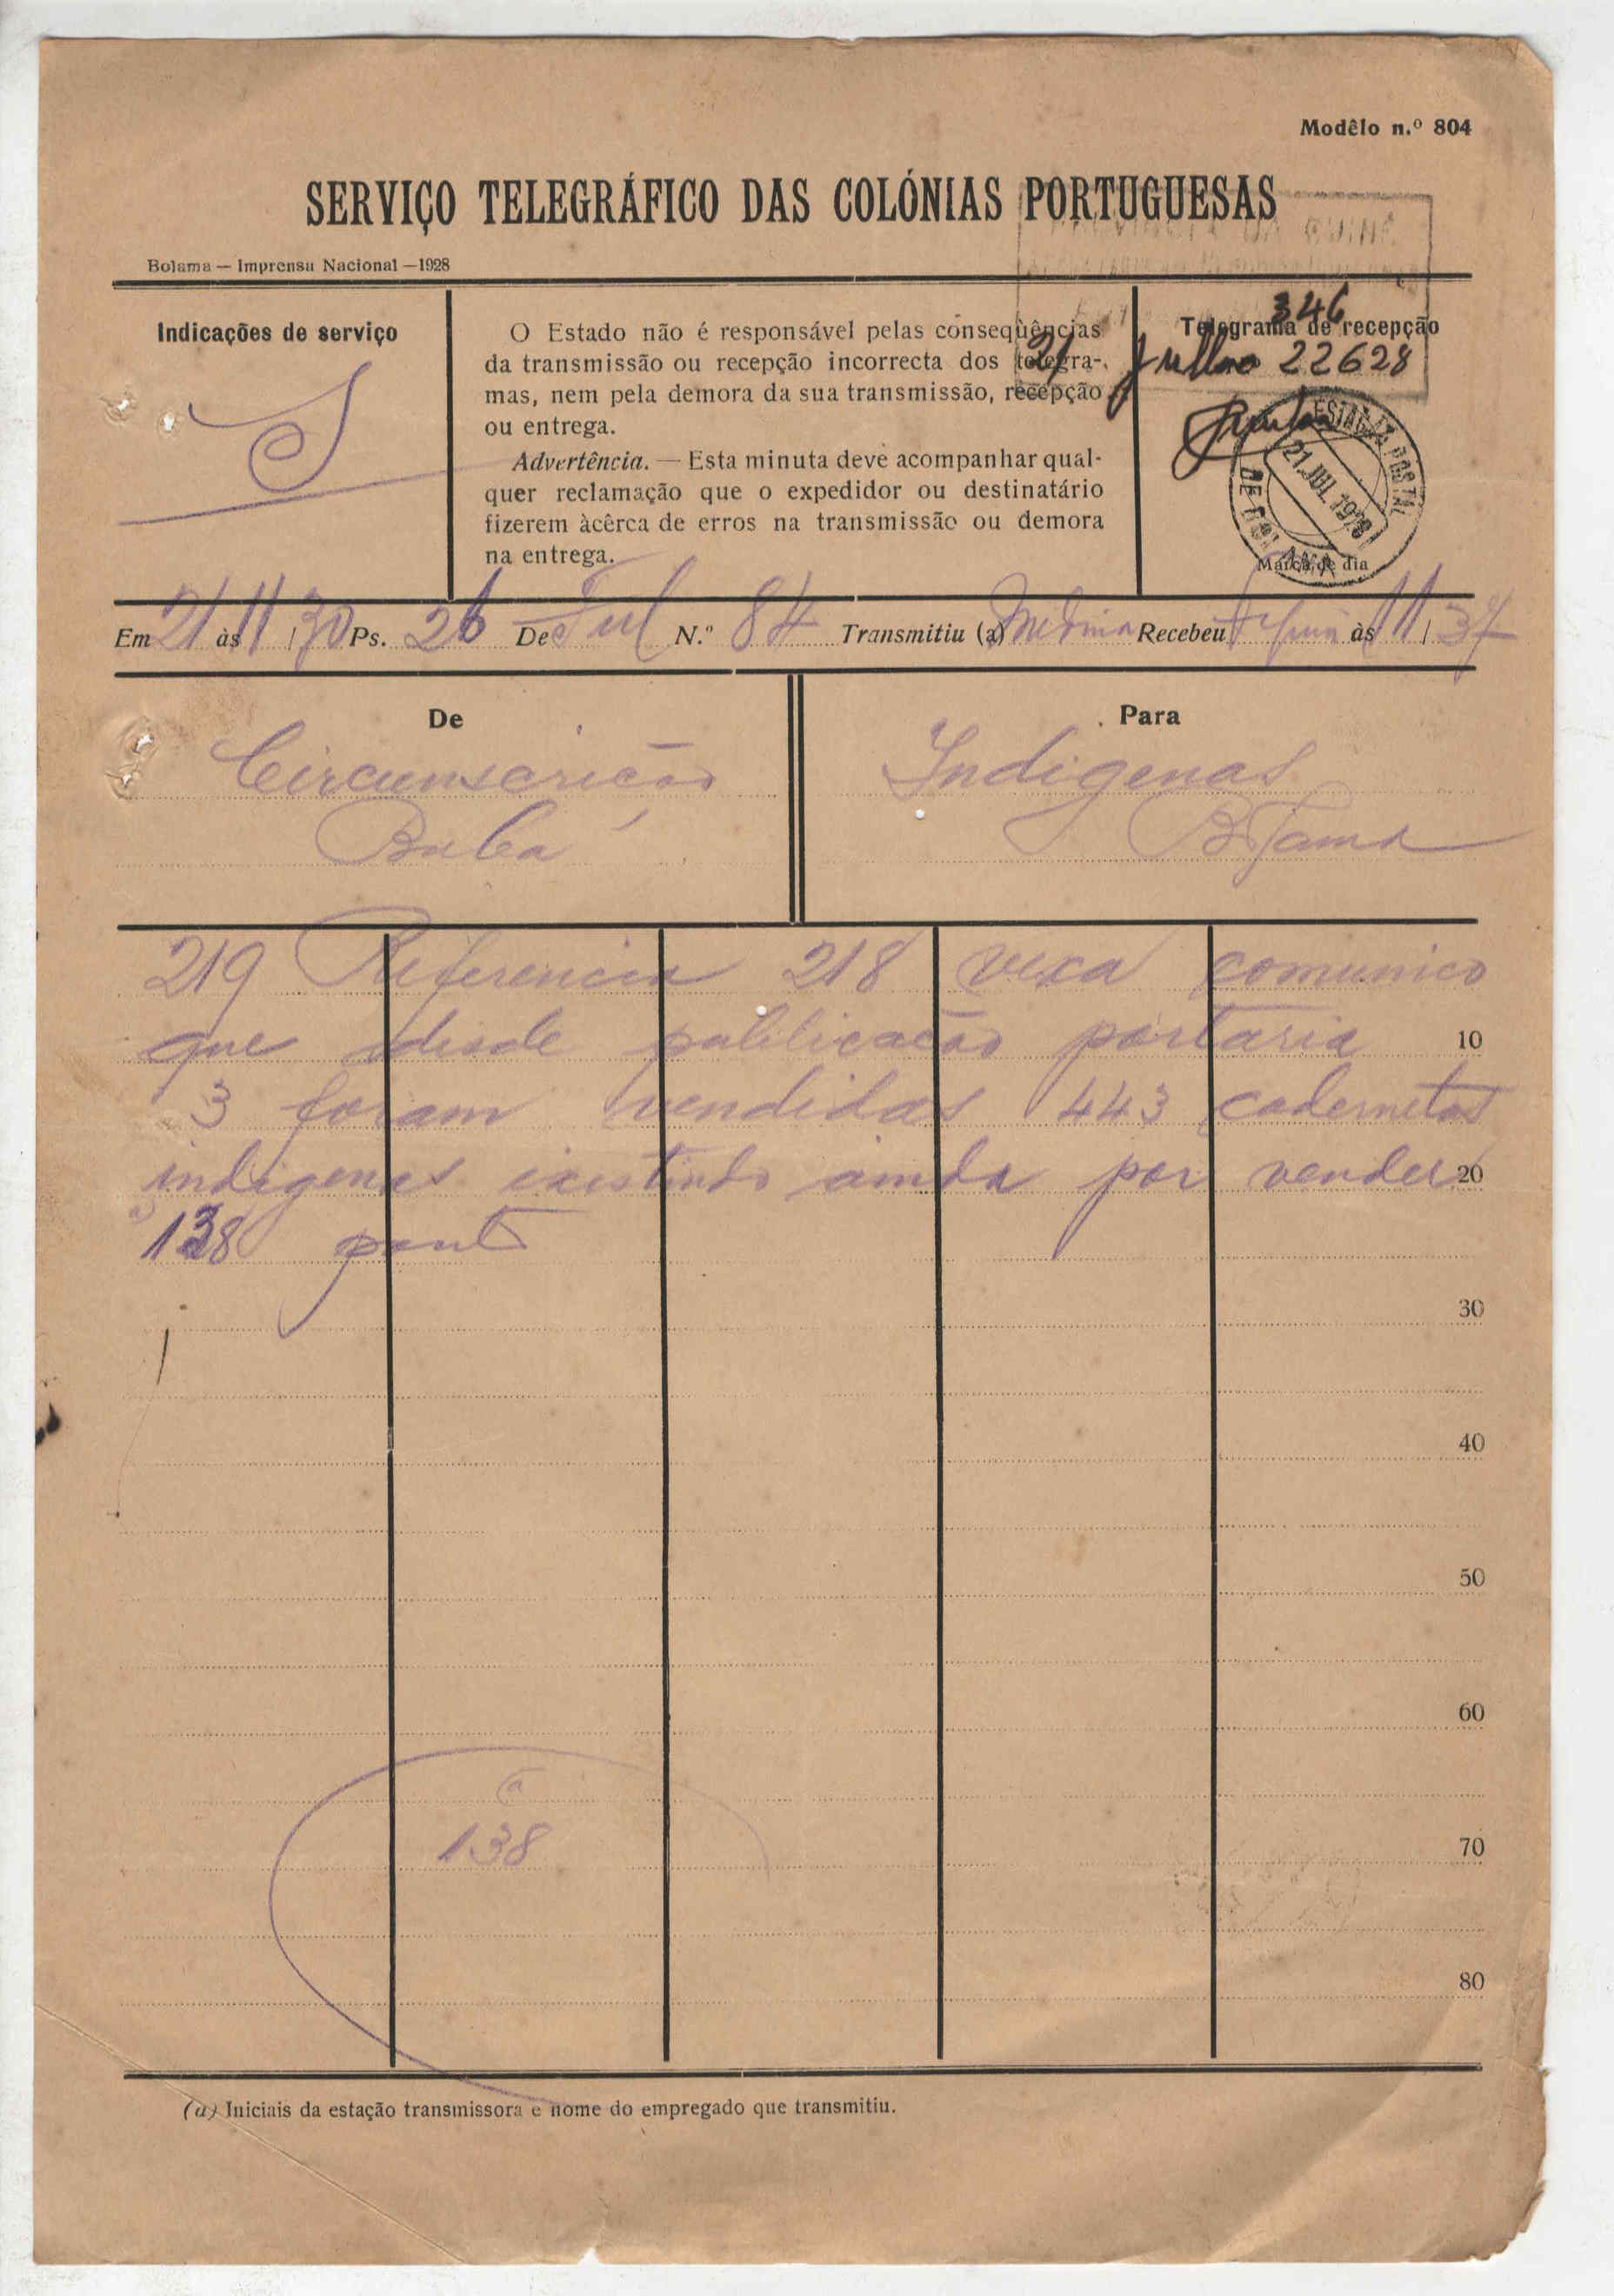 Modêlo n.º 804
SERVIÇO TELEGRÁFICO DAS COLÓNIAS PORTUGUESAS
PROVINCIA DA GUINÉ
Bolama — Imprensa Nacional —1928
Indicações de serviço
S
O Estado não é responsável pelas conseqüências
da transmissão ou recepção incorrecta dos telegra-
mas, nem pela demora da sua transmissão, recepção
ou entrega.
Advertência. — Esta minuta deve acompanhar qual-
quer reclamação que o expedidor ou destinatário
fizerem àcêrca de erros na transmissão ou demora
na entrega.
346
Telegrama de recepção
21 Julho 22628
ESTAÇÃO POSTAL
21 JUL 1928
DE BOLAMA
Marca de dia
Em 21 às 11 / 30 Ps. 26 De Ful N.º 84 Transmitiu (a) Medina Recebeu às 11 / 37
De
Circunscrição
Buba
Para
Indigenas
Bolama
219 Referencia 218 vexa comunico
que desde publicação portaria 10
3 foram vendidas 443 cadernetas
indigenas existindo ainda por vender 20
a) 138 pont
30
40
50
60
a
138
70
80
(a) Iniciais da estação transmissora e nome do empregado que transmitiu.